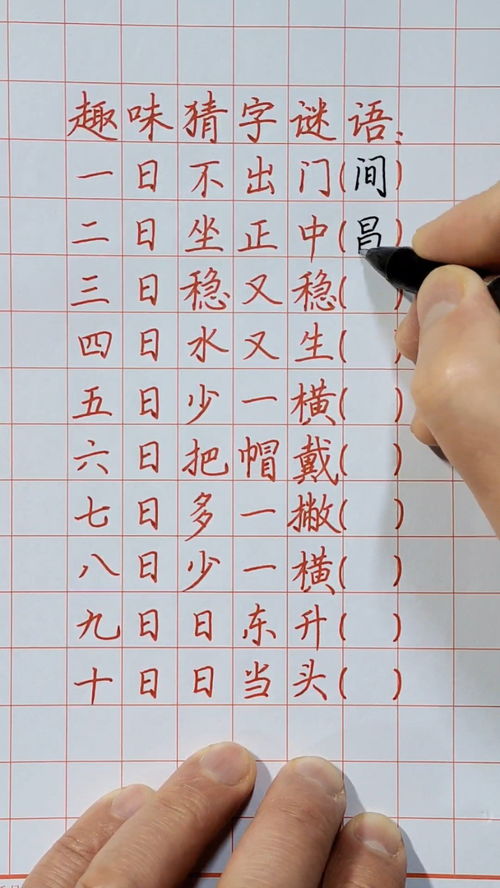 趣味猜字谜语:
一日不出门(间)
二日坐正中(昌)
三日稳又稳( )
四日水又生( )
五日少一横( )
六日把帽戴( )
七日多一撇( )
八日少一横( )
九日日东升( )
十日日当头( )